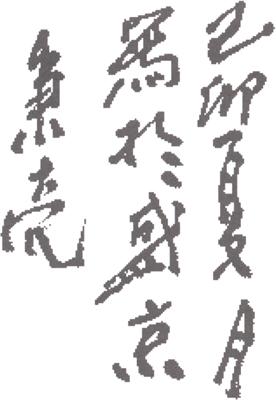 己卯夏月
寫於盛京
秉亮